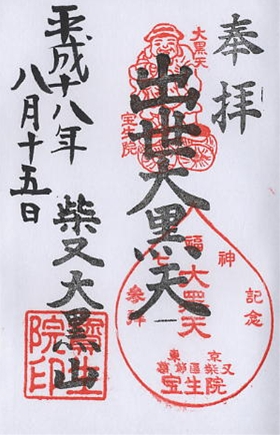 奉拝
大黒天
宝生院
出世大黒天
七福神
大黒天
参拝
記念
東京
葛飾区柴又
宝生院
柴又大黒山
寶生院印
平成十八年
八月十五日